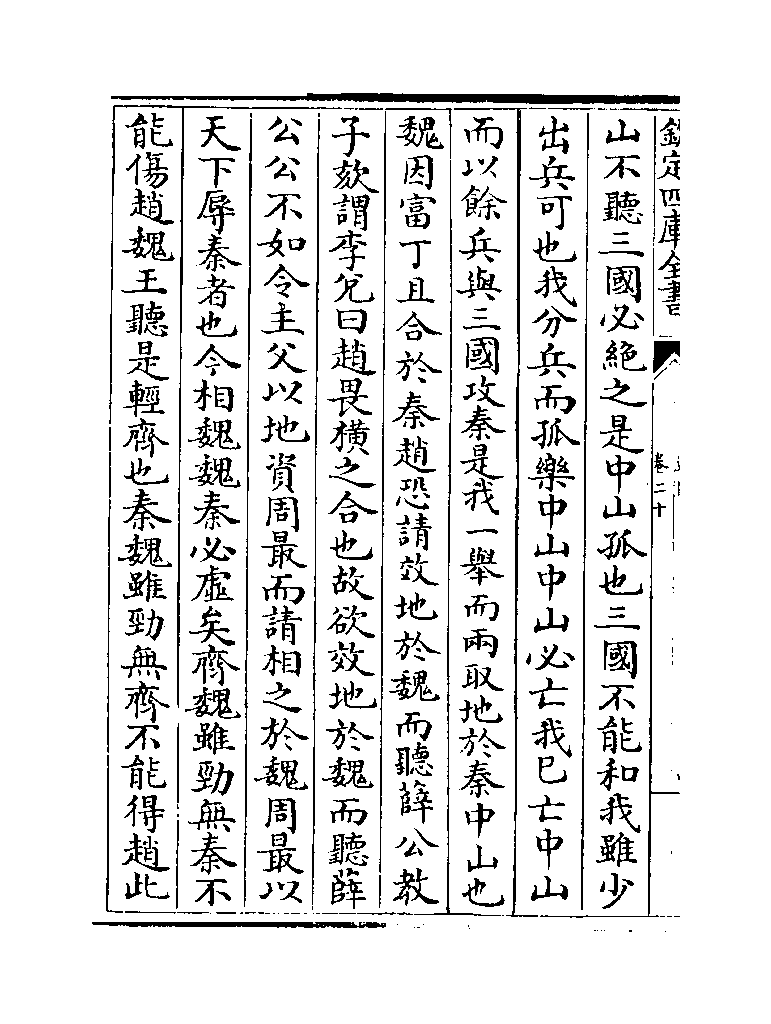 欽定四庫全書
卷二十
山不聽三國必絶之是中山孤也三國不能和我雖少
出兵可也我分兵而孤樂中山中山必亡我已亡中山
而以餘兵與三國攻秦是我一舉而兩取地於秦中山也
魏因富丁且合於秦趙恐請效地於魏而聽薛公教
子欬謂李兊曰趙畏横之合也故欲效地於魏而聽薛
公公不如令主父以地資周最而請相之於魏周最以
天下辱秦者也今相魏魏秦必虛矣齊魏雖勁無秦不
能傷趙魏王聽是輕齊也秦魏雖勁無齊不能得趙此